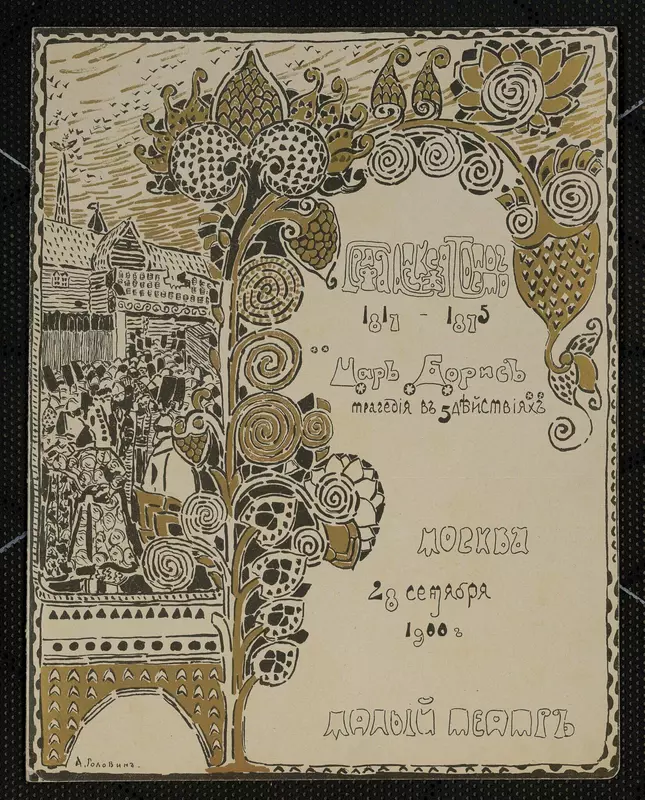 Толстой
1817 - 1875
"Царь Борисъ"
трагедія въ 5 дѣйствіяхъ
Москва
28 сентября
1900 г
Малый театръ
А. Головинъ.